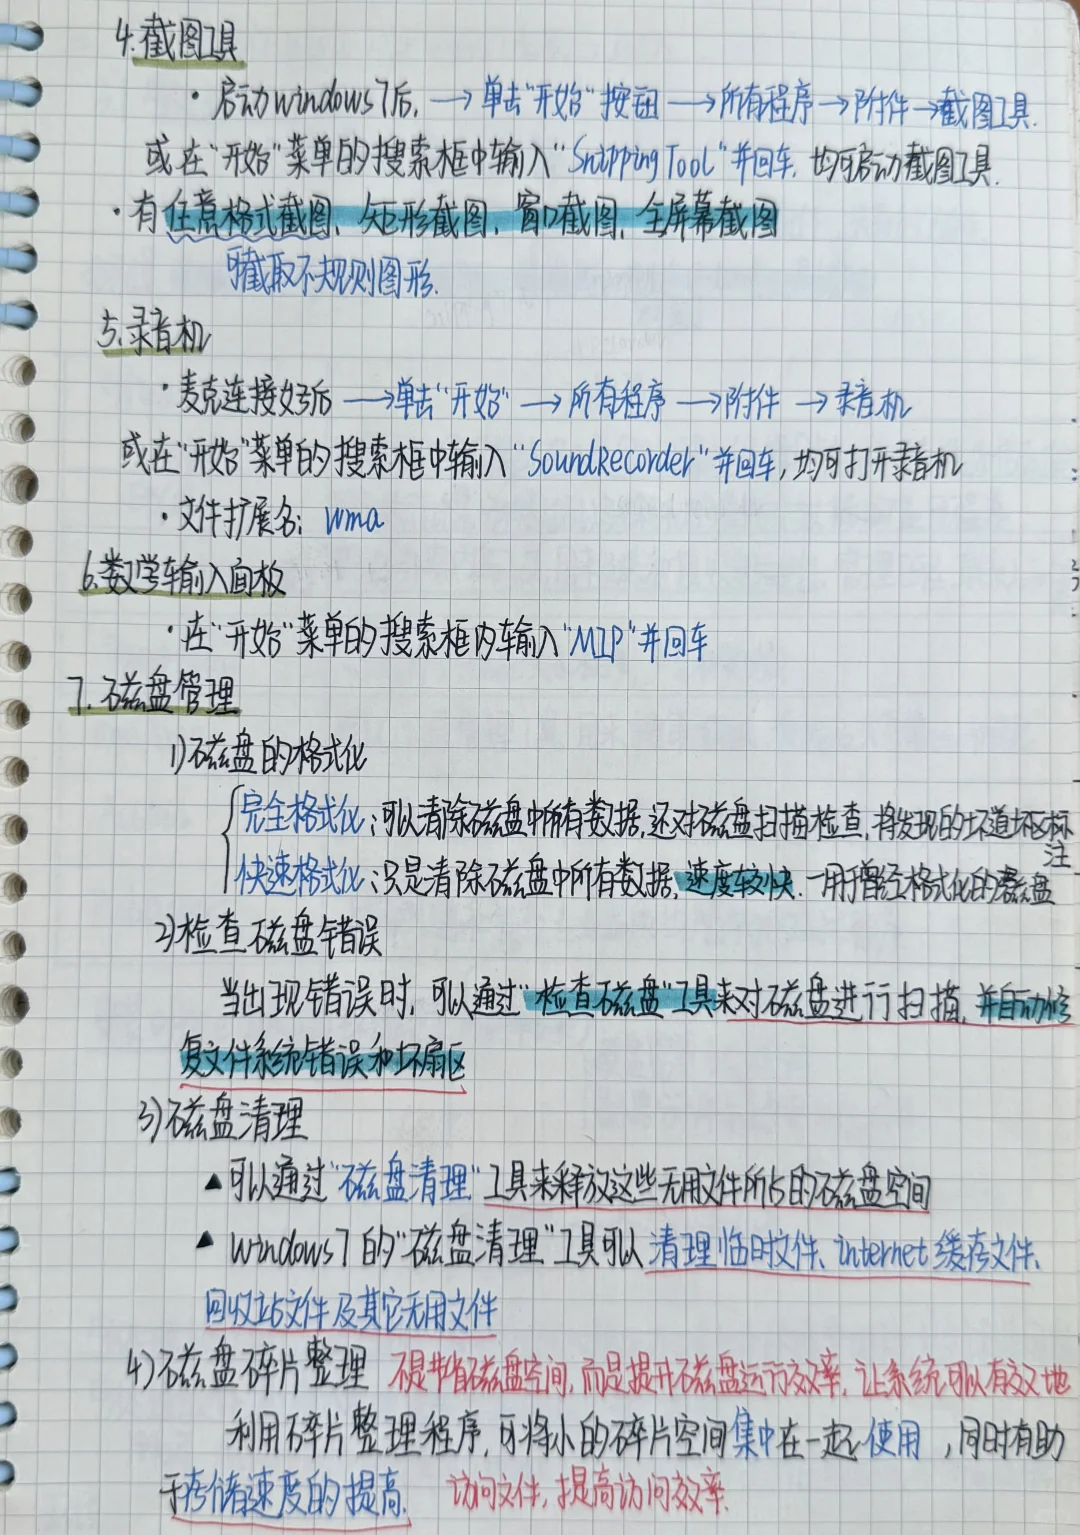 4.截图工具
·启动windows7后,→单击"开始"按钮→所有程序→附件→截图工具.
或在"开始"菜单的搜索框中输入"Snipping Tool"并回车,均可启动截图工具.
·有任意格式截图、矩形截图、窗口截图、全屏幕截图
可截取不规则图形.
5.录音机
·麦克连接好后→单击"开始"→所有程序→附件→录音机
或在"开始"菜单的搜索框中输入"SoundRecorder"并回车,均可打开录音机
·文件扩展名:wma
6.数学输入面板
·在"开始"菜单的搜索框内输入"MIP"并回车
7.磁盘管理
1)磁盘的格式化
完全格式化:可以清除磁盘中所有数据,还对磁盘扫描检查,将发现的坏道坏区标
注
快速格式化:只是清除磁盘中所有数据,速度较快.一用于曾经格式化的磁盘
2)检查磁盘错误
当出现错误时,可以通过"检查磁盘"工具来对磁盘进行扫描,并自动修
复文件系统错误和坏扇区
3)磁盘清理
▲可以通过"磁盘清理"工具来释放这些无用文件所占的磁盘空间
▲windows7的"磁盘清理"工具可以清理临时文件、internet缓存文件、
回收站文件及其它无用文件
4)磁盘碎片整理 不是节省磁盘空间,而是提升磁盘运行效率,让系统可以有效地
利用碎片整理程序,可将小的碎片空间集中在一起使用,同时有助
于存储速度的提高. 访问文件,提高访问效率.